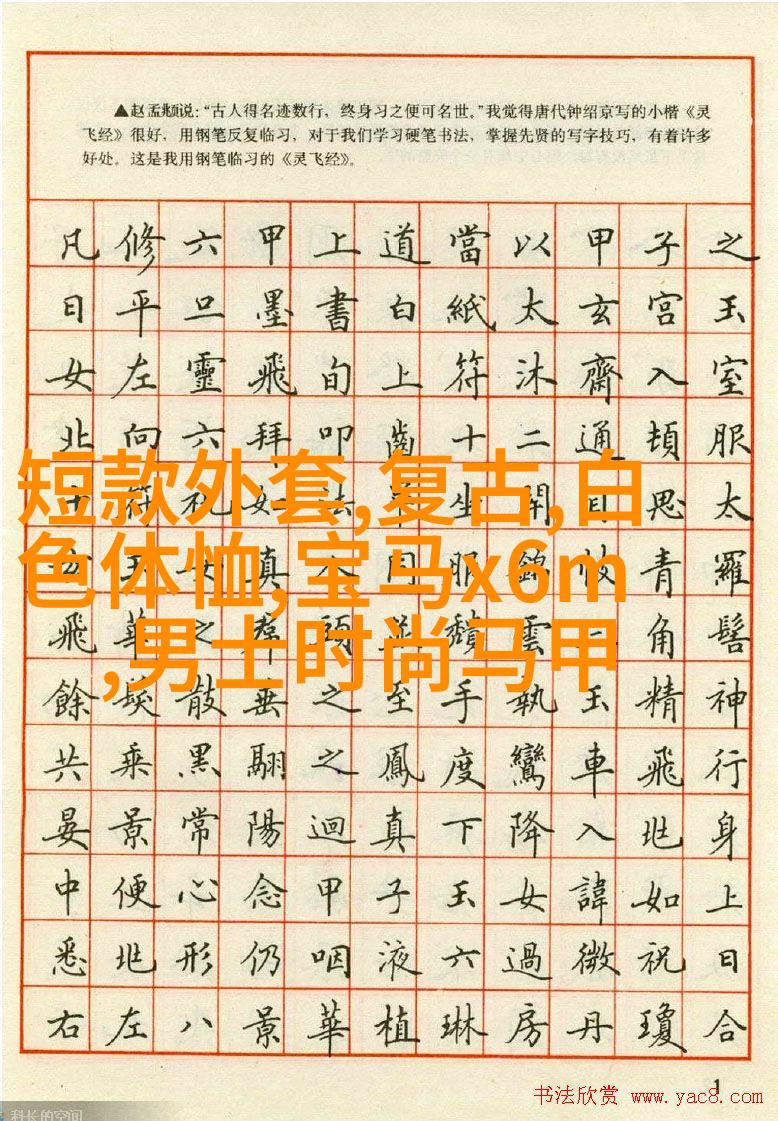 ▲赵孟頫说：“古人得名迹数行，终身习之便可名世。”我觉得唐代钟绍京写的小楷《灵
飞经》很好，用钢笔反复临习，对于我们学习硬笔书法，掌握先贤的写字技巧，有着许多
好处。这是我用钢笔临习的《灵飞经》。
凡修六甲上道當以甲子之
日平旦墨書白紙太玄宮玉
女左靈飛旬上符沐齋入室
北向六拜叩齒十二通頓服
十符祝如法坐開目思太
短款外套,复古,白
色体恤,宝马x6m
,男士时尚马甲
女真同服錦帔青羅
飛華之帬頭並頹雲三角髻
餘髮散垂之至手執玉精神
共乘黑翮之鳳度鸞車飛行
晏景常陽迴真下降入兆身
中便心念甲子玉女諱如上
悉兆形仍咽液六過微祝日
右左八景華植琳房丹瓊合
1
书法欣赏 www.yac8.com
科长的空间